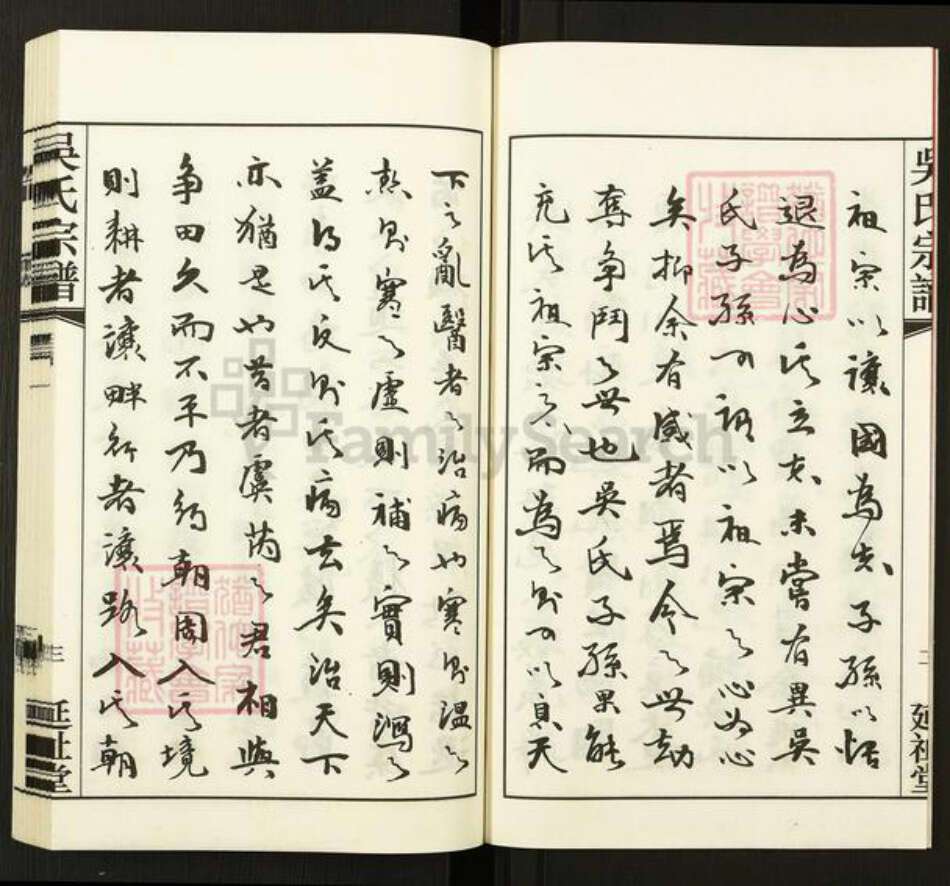 吳氏宗譜
二
延祉堂
祖宗以讓國為志子孫以恬
退為心其立志未嘗有異吳
氏子孫可謂以祖宗之心為心
矣抑余有感者焉今之世劫
奪爭鬥之世也吳氏子孫果能
充其祖宗之所為之則可以息天
下之亂醫者之治病也寒則溫之
熱則寒之虛則補之實則瀉之
蓋得其反則其病去矣治天下
亦猶是也昔者虞芮之君相與
爭田久而不平乃約朝周入其境
則耕者讓畔行者讓路入其朝
吳氏宗譜
三
延祉堂
FamilySearch